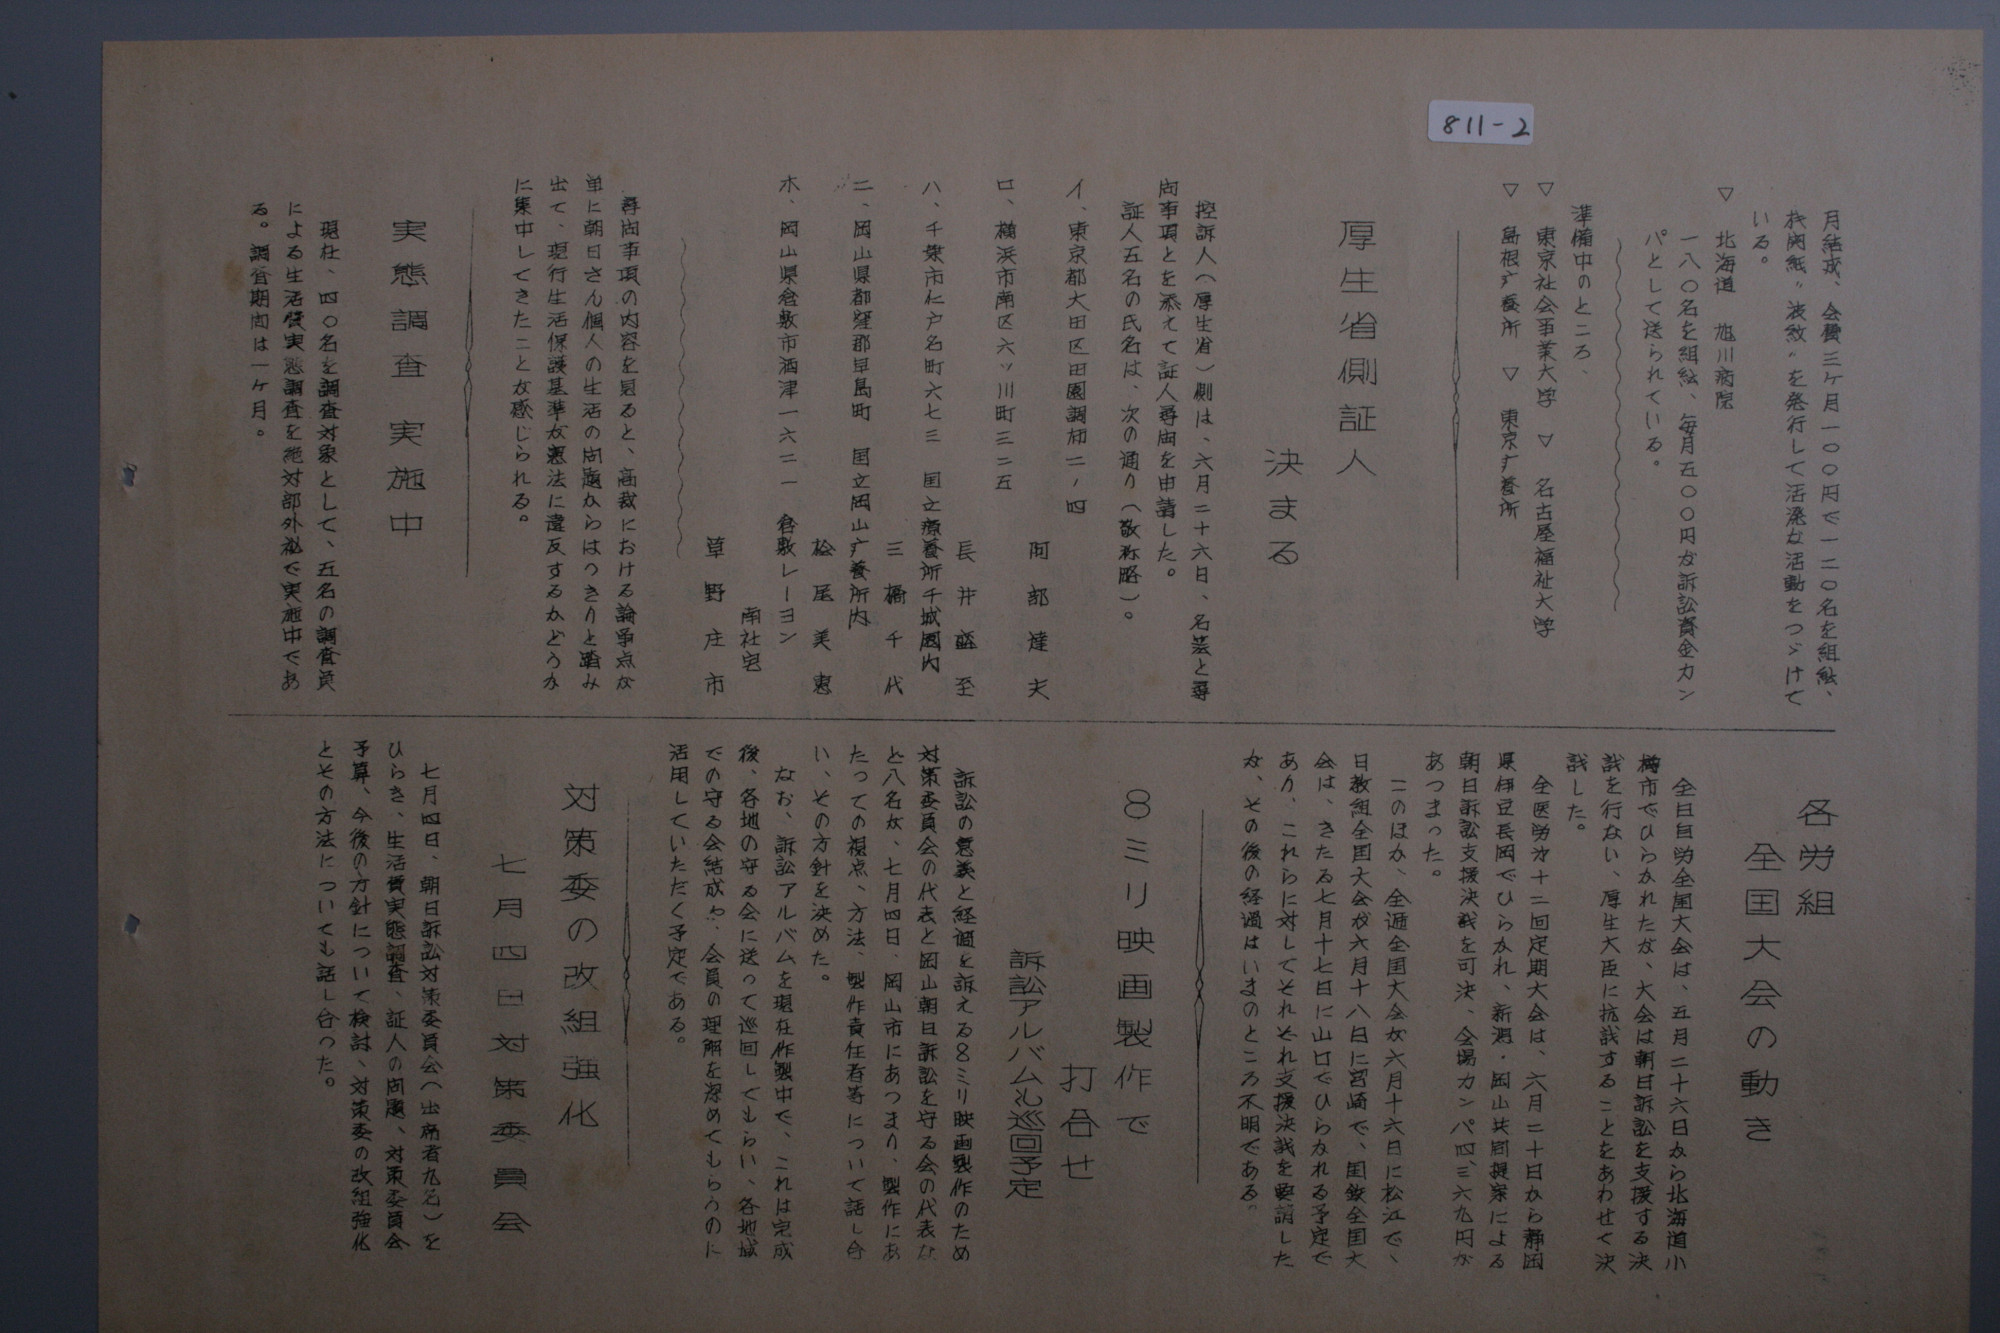 811-2
月結成、会費三ヶ月一〇〇円で一二〇名を組絵、
机関紙〝波紋〟を発行して活溌な活動をつゞけて
いる。
▽ 北海道 旭川病院
一八〇名を組絵、毎月五〇〇円が訴訟資金カン
パとして送られている。
準備中のところ、
▽ 東京社会事業大学 ▽ 名古屋福祉大学
▽ 島根疒養所 ▽ 東京疒養所
厚生省側証人
決まる
控訴人(厚生省)側は、六月二十六日、名芸と尋
向事項とを添えて証人尋向を申請した。
証人五名の氏名は、次の通り(敬称略)。
イ、東京都大田区田園調布二ノ四
阿部達夫
ロ、横浜市南区六ッ川町三二五
長井盛至
ハ、千葉市仁戸名町六七三 国立療養所千城園内
三橋千代
ニ、岡山県都窪郡早島町 国立岡山疒養所内
松尾美恵
ホ、岡山県倉敷市酒津一六二一 倉敷レーヨン
南社宅
草野庄市
尋向事項の内容を見ると、高裁における論争点が
単に朝日さん個人の生活の向題からはっきりと踏み
出て、現行生活保護基準が憲法に違反するかどうか
に集中してきたことが感じられる。
実態調査実施中
現在、四〇名を調査対象として、五名の調査員
による生活費実態調査を絶対部外秘で実施中であ
る。調査期向は一ヶ月。
各労組
全国大会の動き
全日自労全国大会は、五月二十六日から北海道小
樽市でひらかれたが、大会は朝日訴訟を支援する決
議を行ない、厚生大臣に抗議することをあわせて決
議した。
全医労才十二回定期大会は、六月二十日から静岡
県伊豆長岡でひらかれ、新潟・岡山共同提案による
朝日訴訟支援決議を可決、会場カンパ四、三六九円が
あつまった。
このほか、全逓全国大会が六月十六日に松江で、
日教組全国大会が六月十八日に宮崎で、国鉄全国大
会は、きたる七月十七日に山口でひらかれる予定で
あり、これらに対してそれぞれ支援決議を要請した
が、その後の経過はいまのところ不明である。
8ミリ映画製作で
打合せ
訴訟アルバムも巡回予定
訴訟の意義と経過を訴える8ミリ映画製作のため
対策委員会の代表と岡山朝日訴訟を守る会の代表な
ど八名が、七月四日、岡山市にあつまり、製作にあ
たっての視点、方法、製作責任者等について話し合
い、その方針を決めた。
なお、訴訟アルバムを現在作製中で、これは完成
後、各地の守る会に送って巡回してもらい、各地域
での守る会結成や、会員の理解を深めてもらうのに
活用していただく予定である。
対策委の改組強化
七月四日対策委員会
七月四日、朝日訴訟対策委員会(出席者九名)を
ひらき、生活費実態調査、証人の向題、対策委員会
予算、今後の方針について検討、対策委の改組強化
とその方法についても話し合った。